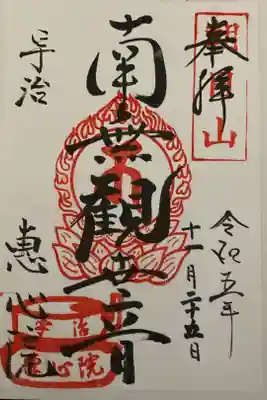 奉拝
令和五年
十一月二十五日
南無観世音
宇治
恵心院
宇治
恵心院